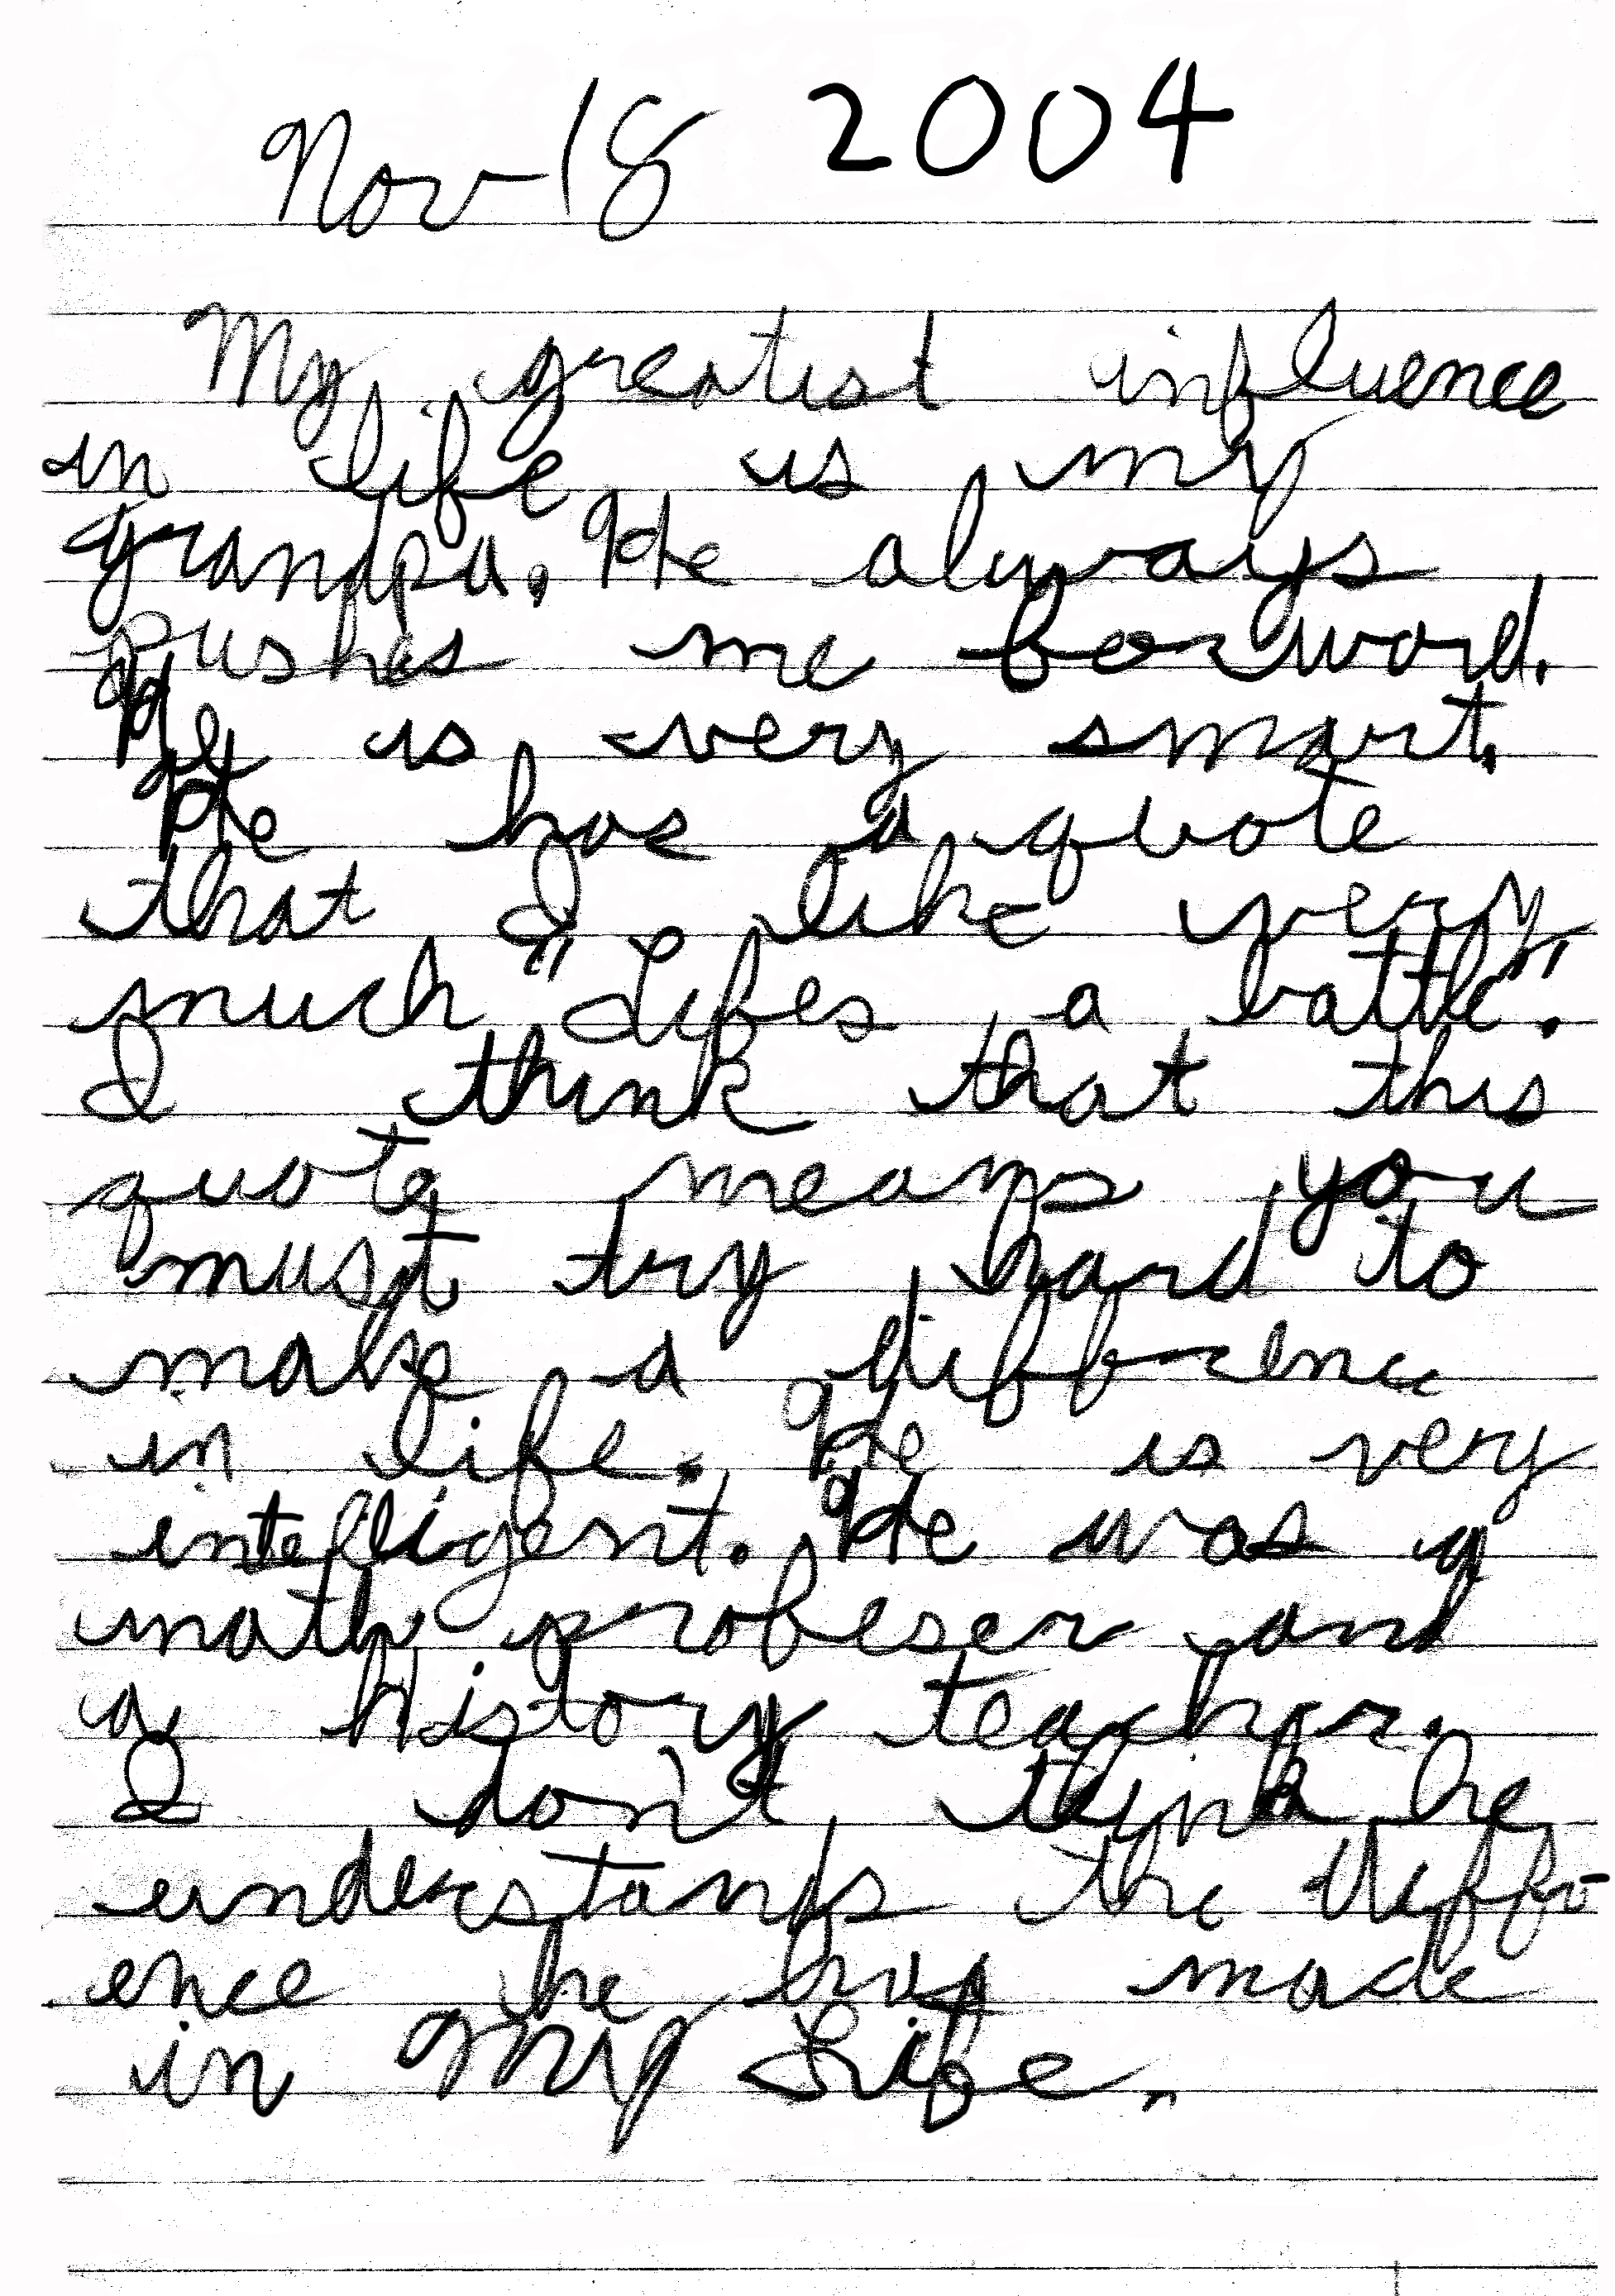 Nov-18 2004
My greatist influence
in life is my
grandpa. He always
pushes me forword.
He is very smart.
He has a quote
that I like very
much "Lifes a battle".
I think that this
quote means you
must try hard to
make a diffrence
in life. He is very
intelligent. He was a
math profeser and
a history teacher.
I don't think he
understands the diffr-
ence he has made
in My Life.